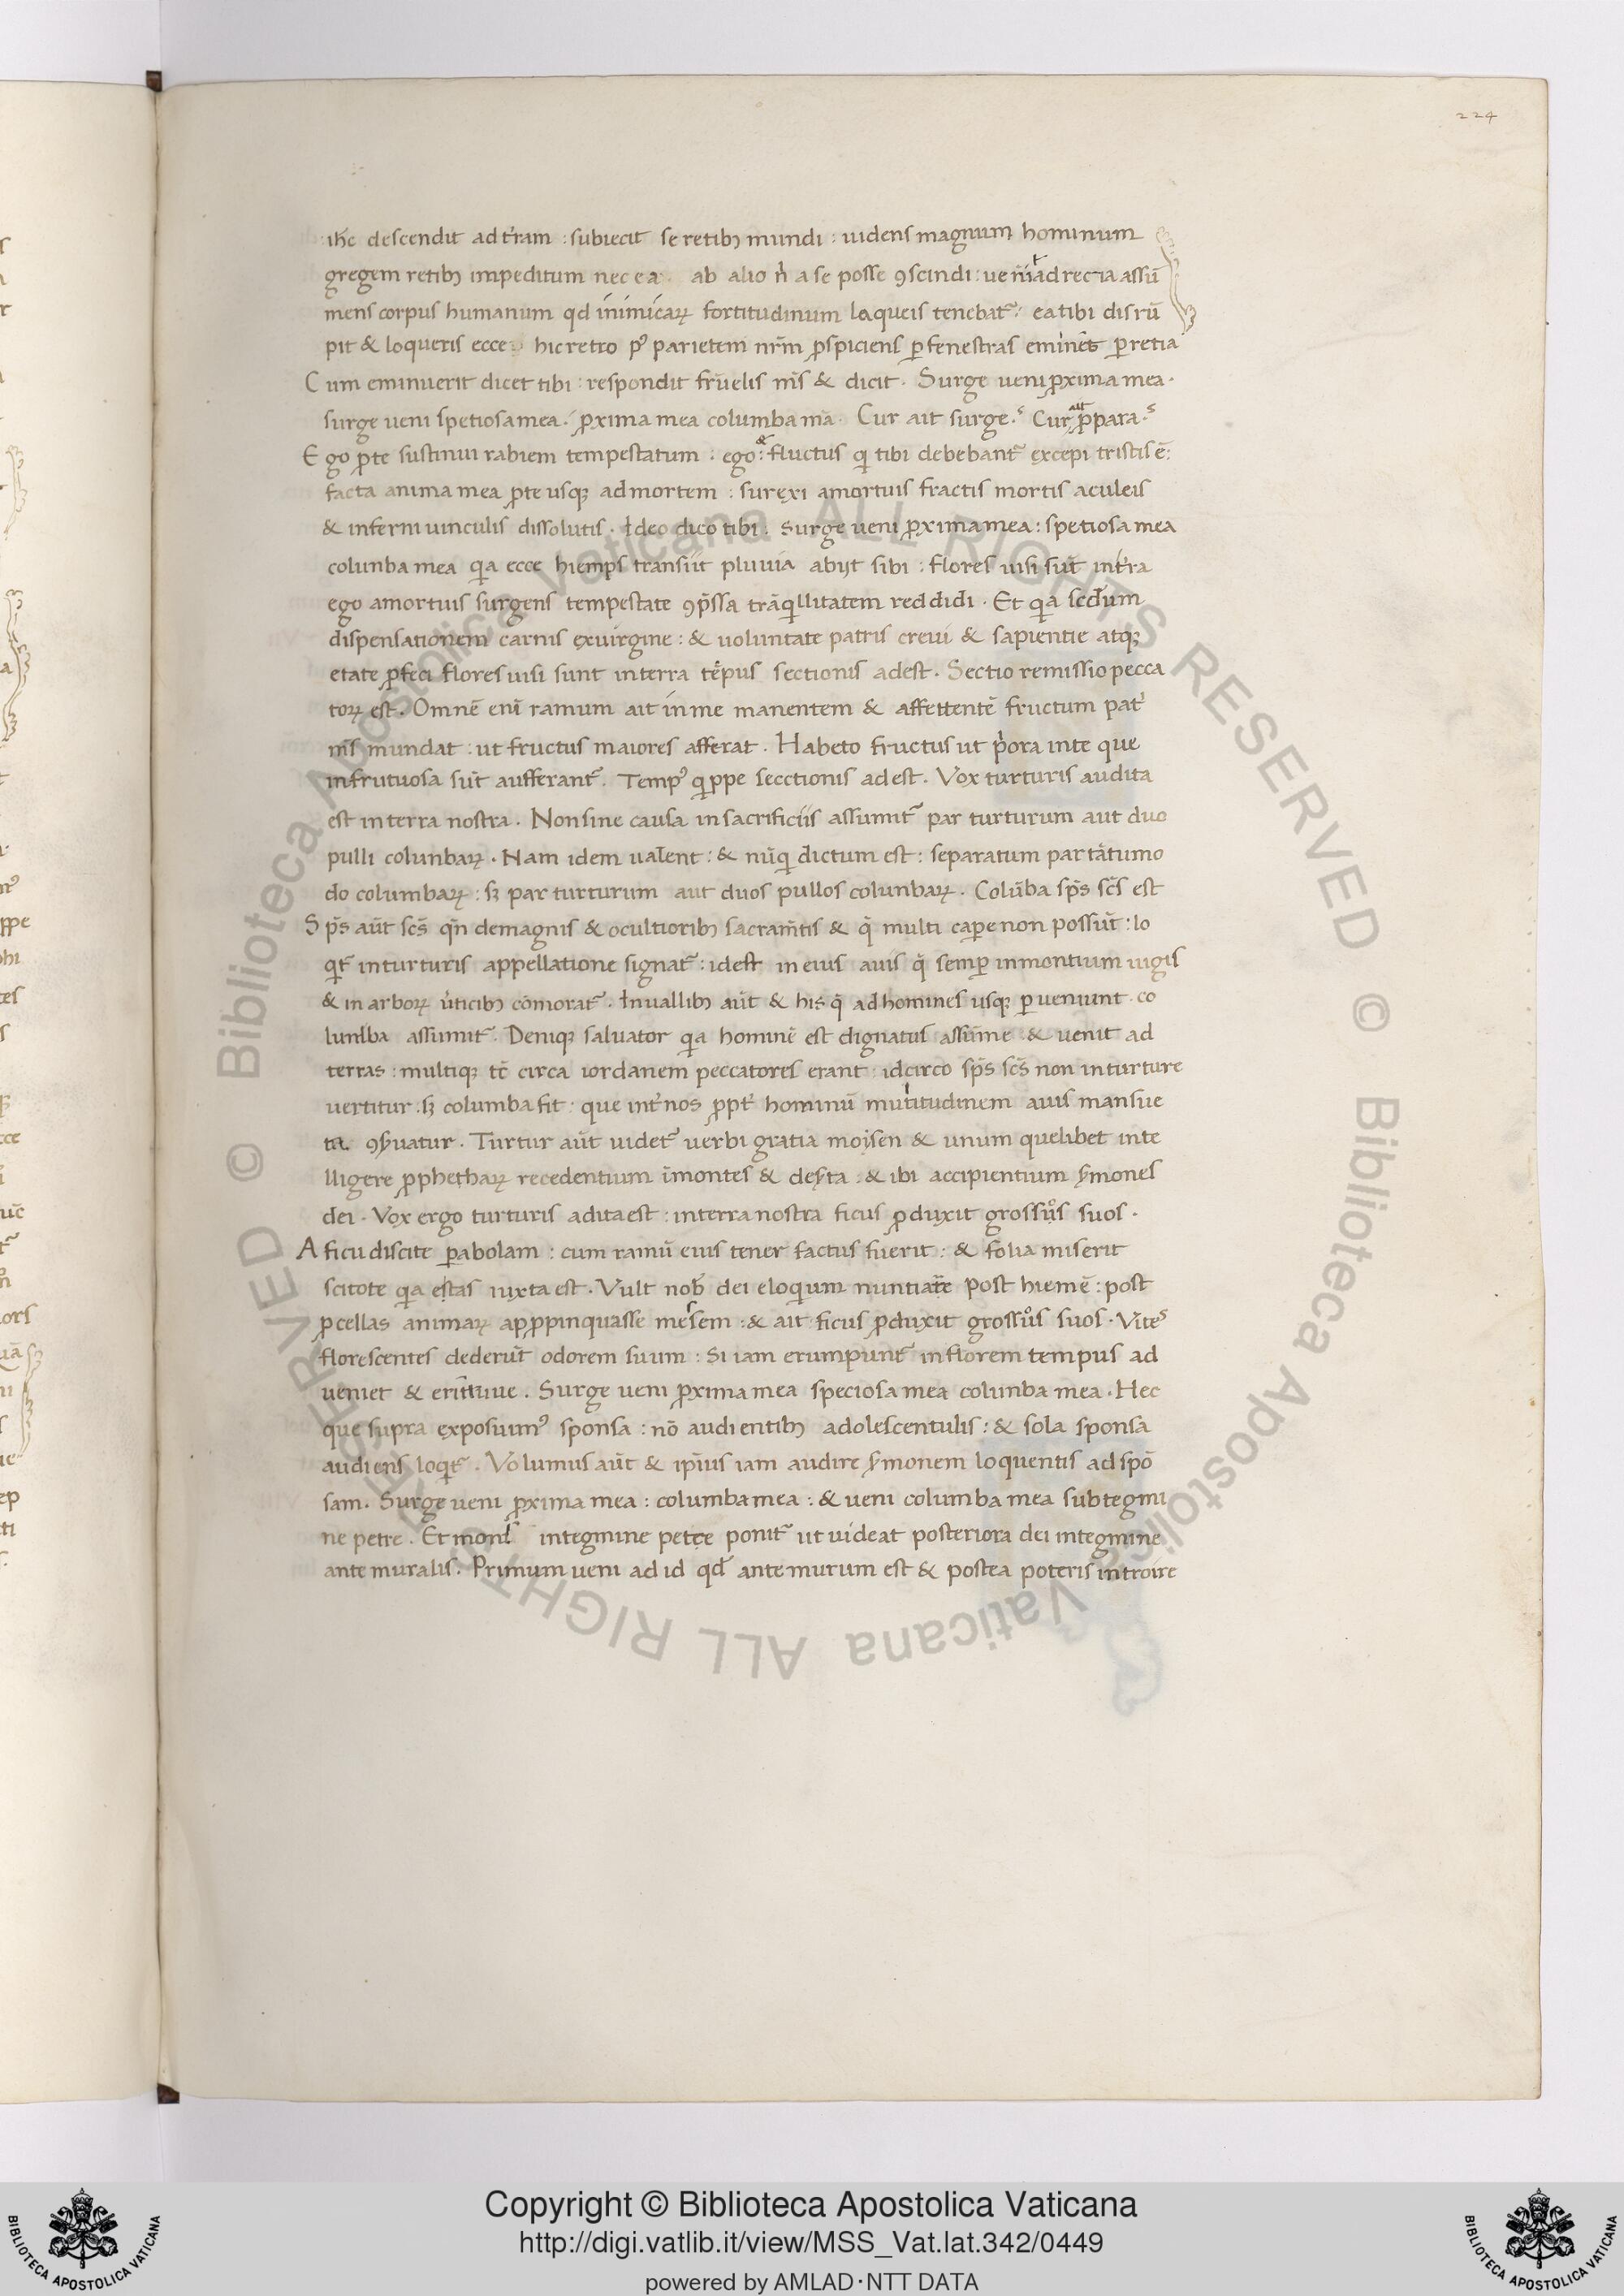 224
ihc̄ descendit ad tr̄am : subiecit se retibꝫ mundi : uidens magnum hominum
gregem retibꝫ impeditum nec ea ab alio ñ a se posse ꝯscindi : uenit ad retia assū
mens corpus humanum qd inimicaꝝ fortitudinum laqueis tenebat᷑ : ea tibi disrū
pit & loqueris ecce hic retro pꝰ parietem nr̄m ꝓspiciens ꝑ fenestras eminēs ꝑ retia
Cum eminuerit dicet tibi : respondit fr̄uelis m̄s & dicit . Surge ueni ꝓxima mea .
surge ueni spetiosa mea . ꝓxima mea columba mā . Cur ait surge . Cur ait p̄para .
Ego ꝓ te sustinui rabiem tempestatum . ego fluctus q̇ tibi debebant᷑ excepi tristis ē :
facta anima mea ꝓ te usqꝫ ad mortem : surexi a mortuis fractis mortis aculeis
& inferni uinculis dissolutis . Ideo dico tibi . Surge ueni ꝓxima mea : spetiosa mea
colunba mea qa ecce hiemps transiit pluuia abijt sibi : flores uisi sūt in tr̄ra
ego a mortuis surgens tempestate ꝯp̄ssa trāqllitatem reddidi . Et qa scdum
dispensationem carnis ex uirgine : & uoluntate patris creui & sapientie atqꝫ
etate ꝓfeci flores uisi sunt in terra tēpus sectionis adest . Sectio remissio pecca
toꝝ est . Omnē enī ramum ait in me manentem & affettentē fructum pat̄
m̄s mundat : ut fructus maiores afferat . Habeto fructus ut p̄ora in te que
infrutuosa sūt aufferant᷑ . Tempꝰ qppe secctionis adest . Vox turturis audita
est in terra nostra . Non sine causa in sacrificiis assumit᷑ par turturum aut duo
pulli colunbaꝝ . Nam idem ualent : & nūq dictum est : separatum par tātumo
do columbaꝝ : sꝫ par turturum aut duos pullos colunbaꝝ . Colūba sp̄s sc̄s est
Sp̄s aūt sc̄s qn̄ de magnis & ocultioribꝫ sacram̄tis & q̄ multi capere non possūt : lo
qt᷑ in turturis appellatione signat᷑ : id est in eius auis q̄ semꝑ in montium iugis
& in arboꝝ ūticibꝫ cōmorat᷑ . In uallibꝫ aūt & his q̄ ad homines usqꝫ ꝑueniunt . co
lunba assumit᷑ . Deniqꝫ saluator qa hominē est dignatus assūme & uenit ad
terras : multiqꝫ tc̄ circa iordanem peccatores erant : idcirco sp̄s sc̄s non in turture
uertitur . sꝫ columba fit : que int̄ nos ꝓpt̄ hominū multitudinem auis mansue
ta ꝯẏuatur . Turtur aūt uidet᷑ uerbi gratia moẏsen & unum quelibet inte
lligere ꝓphetharꝝ recedentium ī montes & deẏta : & ibi accipientium ẏmones
dei . Vox ergo turturis adita est : in terra nostra ficus ꝓduxit grossuos suos .
A ficu discite ꝑabolam : cum ramū eius tener factus fuerit : & folia miserit
scitote qa estas iuxta est . Vult nob̄ dei eloqium nuntiare post hiemē : post
ꝓcellas animaꝝ apꝓpinquasse mesem : & ait ficus ꝓduxit grossuos suos . Vites
florescentes dederūt odorem suum : Si iam erumpunt᷑ in florem tempus ad
ueniet & erit uue . Surge ueni ꝓxima mea speciosa mea colunba mea . Hec
que supra exposuimꝰ sponsa : nō audientibꝫ adolescentulis : & sola sponsa
audiens loqt᷑ . Volumus aūt & ipīus iam audire ẏmonem loquentis ad spō
sam . Surge ueni ꝓxima mea : columba mea : & ueni columba mea sub tegmi
ne petre . Et in tegmine petre ponit᷑ ut uideat posteriora dei in tegmine
ante muralis . Primum ueni ad id qd̄ ante murum est & postea poteris introire
© Biblioteca Apostolica Vaticana ALL RIGHTS RESERVED © Biblioteca Apostolica Vaticana ALL RIGHTS RESERVED
Copyright © Biblioteca Apostolica Vaticana
http://digi.vatlib.it/view/MSS_Vat.lat.342/0449
powered by AMLAD·NTT DATA
BIBLIOTECA APOSTOLICA VATICANA
BIBLIOTECA APOSTOLICA VATICANA